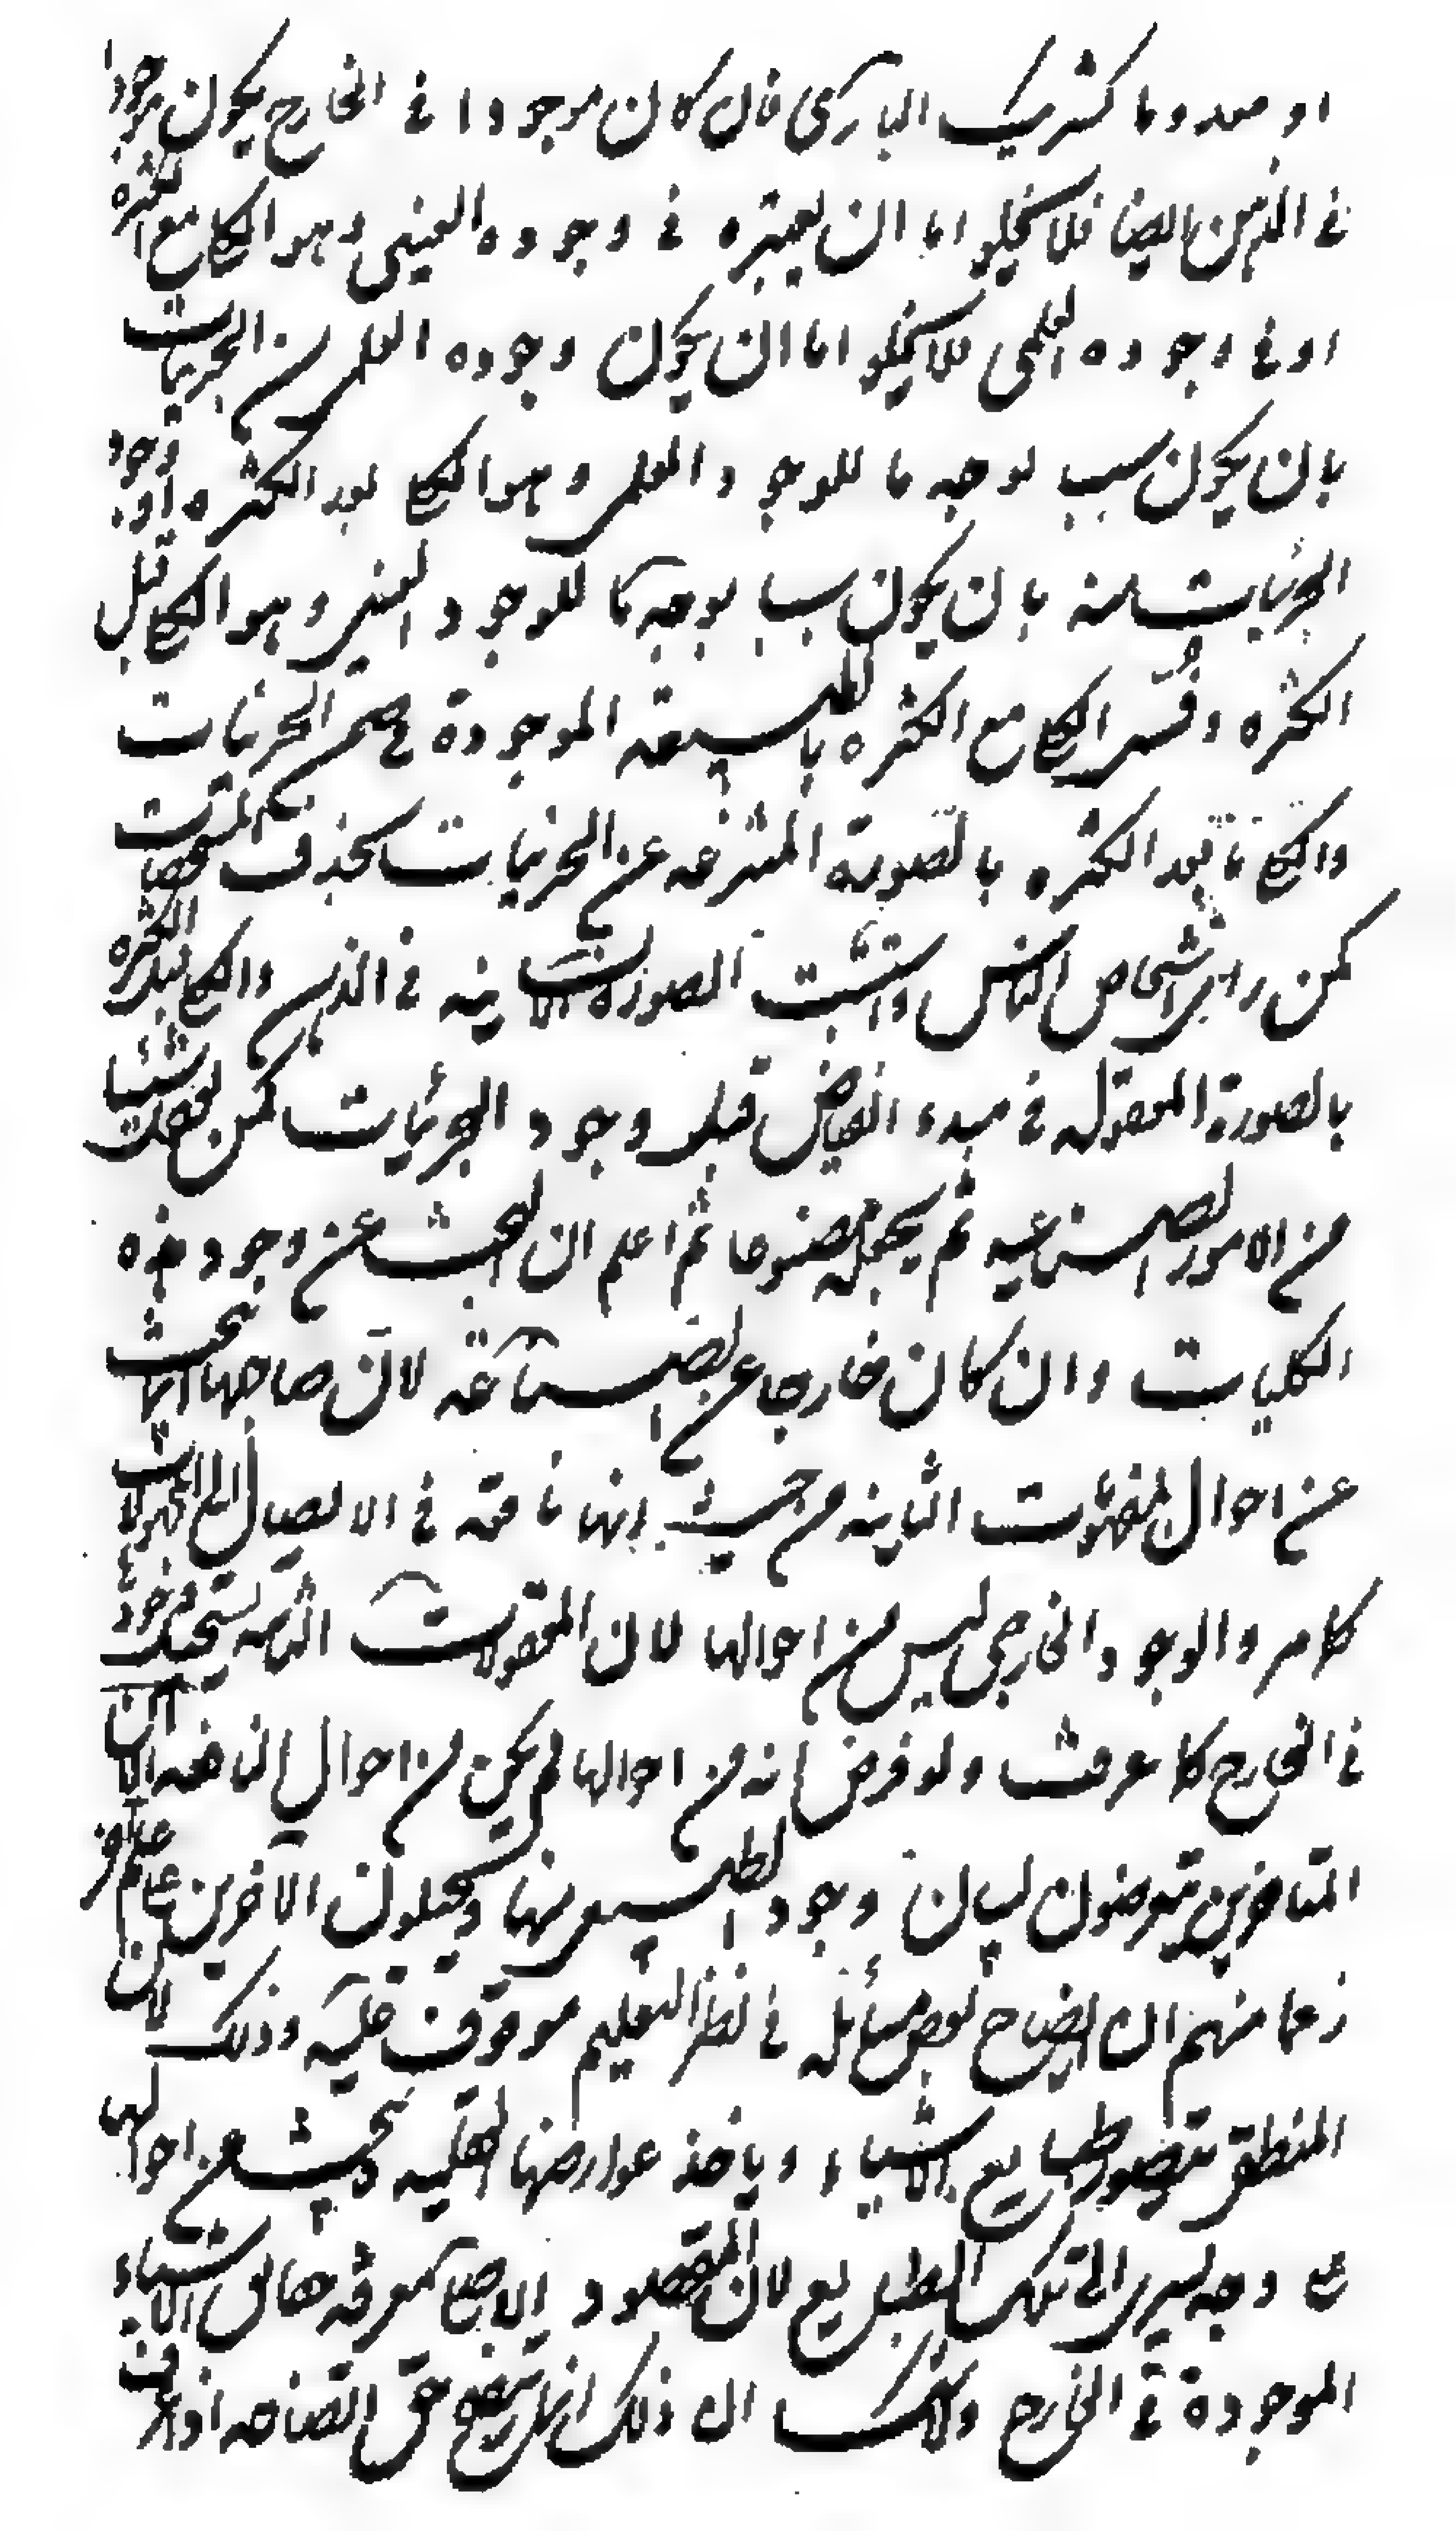 او معدوما كشريك الباري فان كان موجودا في الخارج يكون موجودا
في الذهن ايضا فلا يخلو اما ان يعتبره في وجوده العيني وهو الكلي مع الكثرة
او في وجوده العلمي فلا يخلو اما ان يكون وجوده العلمي من الجزئيات
بان يكون سبب بوجه ما للوجود العلمي وهو الكلي بعد الكثره او وجود
الجزئيات منه بان يكون سببا بوجه ما للوجود العيني وهو الكلي قبل
الكثره وفسر الكلي مع الكثره بالطبيعه الموجودة في ضمن الجزئيات
والكلي ما بعد الكثره بالصورة المنتزعه عن الجزئيات بحذف المشخصات
كمن راى اشخاص الناس واثبت الصورة الانسانيه في الذهن والكلي قبل الكثره
بالصورة المعقوله في مبدء الفياض قبل وجود الجزئيات كمن تعقل شيئا
من الامور الصناعيه ثم يجعله مصنوعا ثم اعلم ان البحث عن وجود هذه
الكليات وان كان خارجا عن الصناعه لان صاحبها انما يبحث
عن احوال المعقولات الثانيه من حيث انها نافعه في الايصال الى المجهولات
كما مر والوجود الخارجي ليس من احوالها لان المعقولات الثانيه يستحيل وجودها
في الخارج كما عرفت ولو فرض انه من احوالها لم يكن من احوال النافعه الا ان
المتاخرين يتعرضون لبيان وجود الطبيعي منها ويحيلون الاخرين على علم اخر
زعما منهم ان ايضاح بعض مسائله في نظر التعليم موقوف عليه وذلك لان
المنطقي يتصور طبايع الاشياء وياخذ عوارضها العقليه فيبحث عن احوالها
على وجه يسري الى تلك الطبايع لان المقصود الايصال الى معرفة حقائق الاشياء
الموجودة في الخارج ولا شك ان ذلك انما يتضح حق اتضاحه اذا عرف